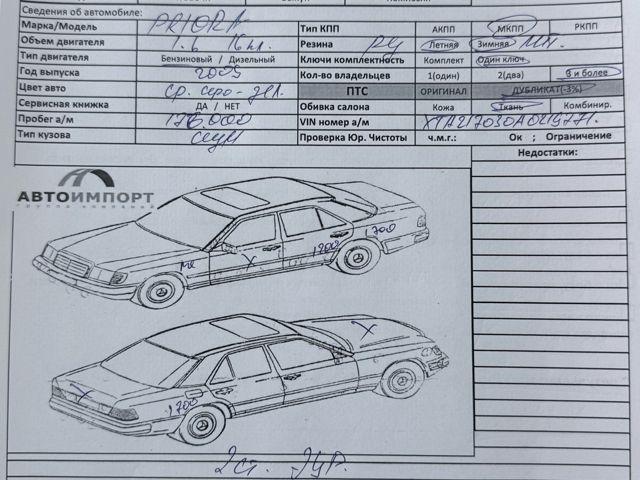 Сведения об автомобиле:
Марка/Модель PRIORA Тип КПП АКПП МКПП РКПП
Объем двигателя 1.6 16кл. Резина Летняя Зимняя
Тип двигателя Бензиновый / Дизельный Ключи комплектность Комплект Один ключ
Год выпуска 2009 Кол-во владельцев 1(один) 2(два) 3 и более
Цвет авто ср. серо-зел. ПТС ОРИГИНАЛ ДУБЛИКАТ(-3%)
Сервисная книжка ДА / НЕТ Обивка салона Кожа Ткань Комбинир.
Пробег а/м 176000 VIN номер а/м XTA217030A0219771.
Тип кузова седан Проверка Юр. Чистоты ч.м.г.: Ок ; Ограничение
Недостатки:
АВТОИМПОРТ
группа компаний
1200 1700
X
X
X
1700
2ст. ЭУР.